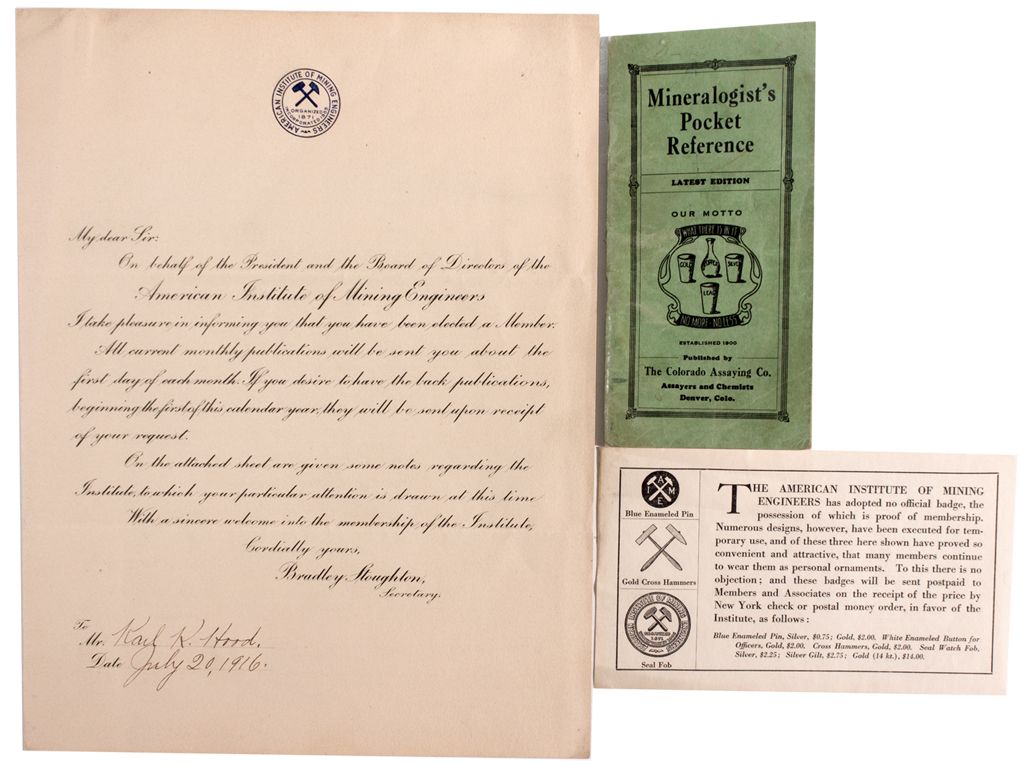 AMERICAN INSTITUTE OF MINING ENGINEERS
ORGANIZED
1871
INCORPORATED 1905
My dear Sir:
On behalf of the President and the Board of Directors of the
American Institute of Mining Engineers
I take pleasure in informing you that you have been elected a Member.
All current monthly publications will be sent you about the
first day of each month. If you desire to have the back publications,
beginning the first of this calendar year, they will be sent upon receipt
of your request.
On the attached sheet are given some notes regarding the
Institute, to which your particular attention is drawn at this time
With a sincere welcome into the membership of the Institute,
Cordially yours,
Bradley Stoughton,
Secretary.
To
Mr. Karl K. Hood.
Date July 20, 1916.
Mineralogist's
Pocket
Reference
LATEST EDITION
OUR MOTTO
WHAT THERE IS IN IT
GOLD
COPPER
SILVER
LEAD
NO MORE - NO LESS
ESTABLISHED 1900
Published by
The Colorado Assaying Co.
Assayers and Chemists
Denver, Colo.
A
I M
E
Blue Enameled Pin
Gold Cross Hammers
Seal Fob
THE AMERICAN INSTITUTE OF MINING
ENGINEERS has adopted no official badge, the
possession of which is proof of membership.
Numerous designs, however, have been executed for tem-
porary use, and of these three here shown have proved so
convenient and attractive, that many members continue
to wear them as personal ornaments. To this there is no
objection; and these badges will be sent postpaid to
Members and Associates on the receipt of the price by
New York check or postal money order, in favor of the
Institute, as follows:
Blue Enameled Pin, Silver, $0.75; Gold, $2.00. White Enameled Button for
Officers, Gold, $2.00. Cross Hammers, Gold, $2.00. Seal Watch Fob,
Silver, $2.25; Silver Gilt, $2.75; Gold (14 kt.), $14.00.